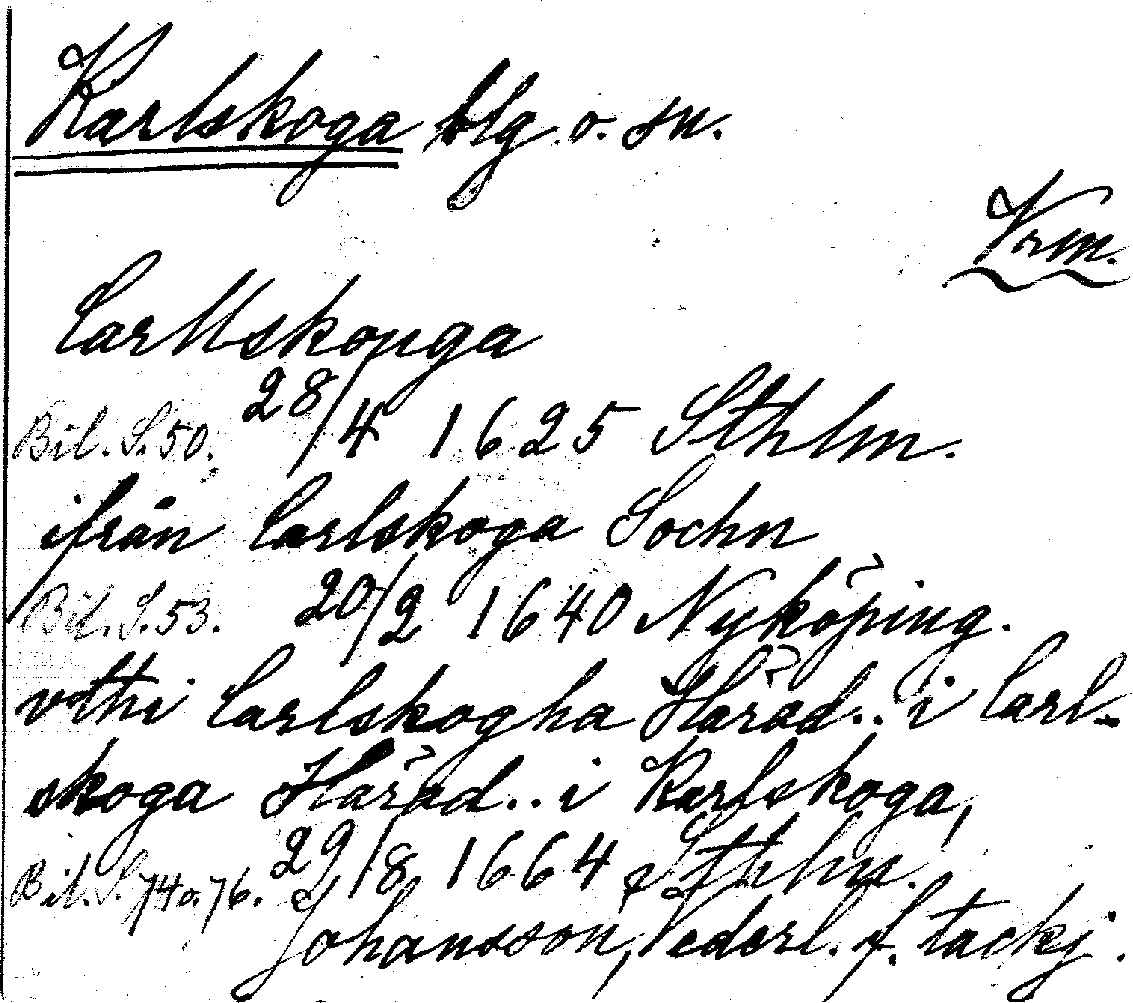 Karlskoga blg o. sn.
Vrm.
Carllskouga
Bil. S. 50. 28/4 1625 Sthlm.
ifrån Carlskoga Sochn
Bil. S. 53. 20/2 1640 Nyköping.
vthi Carlskogha Härad.. i Carl-
skoga Härad.. i Karlskoga,
Bil. S. 74 o. 76. 29/8 1664 Sthlm.
Johansson, Vederl. f. tackj.